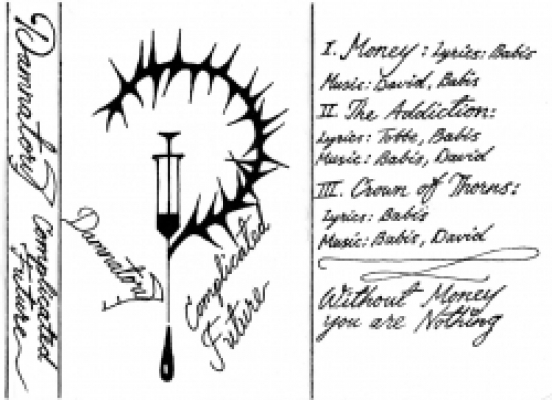 Damnatory
Complicated
Future
Damnatory
Complicated
Future
I. Money: Lyrics: Babis
Music: David, Babis
II. The Addiction:
Lyrics: Tobbe, Babis
Music: Babis, David
III. Crown off Thorns:
Lyrics: Babis
Music: Babis, David
Without Money
you are Nothing